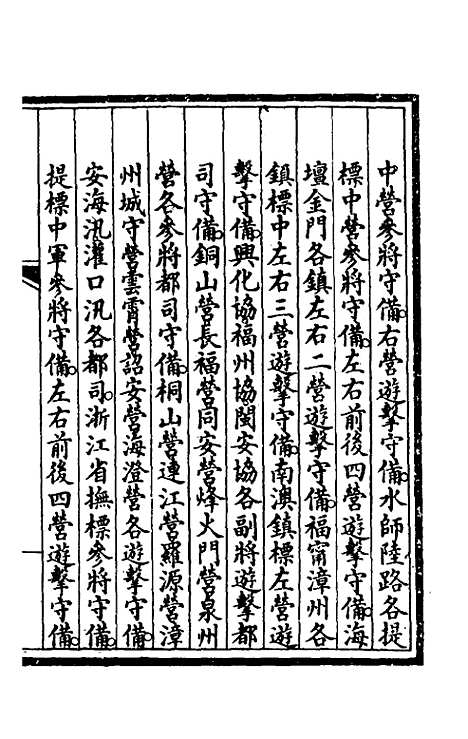 中營參將守備。右營遊擊守備。水師陸路各提
標中營參將守備。左右前後四營遊擊守備。海
壇金門各鎮左右二營遊擊守備。福甯漳州各
鎮標中左右三營遊擊守備。南澳鎮標左營遊
擊守備。興化協福州協閩安協各副將遊擊都
司守備。銅山營長福營同安營烽火門營泉州
營各參將都司守備。桐山營連江營羅源營漳
州城守營雲霄營詔安營海澄營各遊擊守備。
安海汛灌口汛各都司。浙江省撫標參將守備。
提標中軍參將守備。左右前後四營遊擊守備。